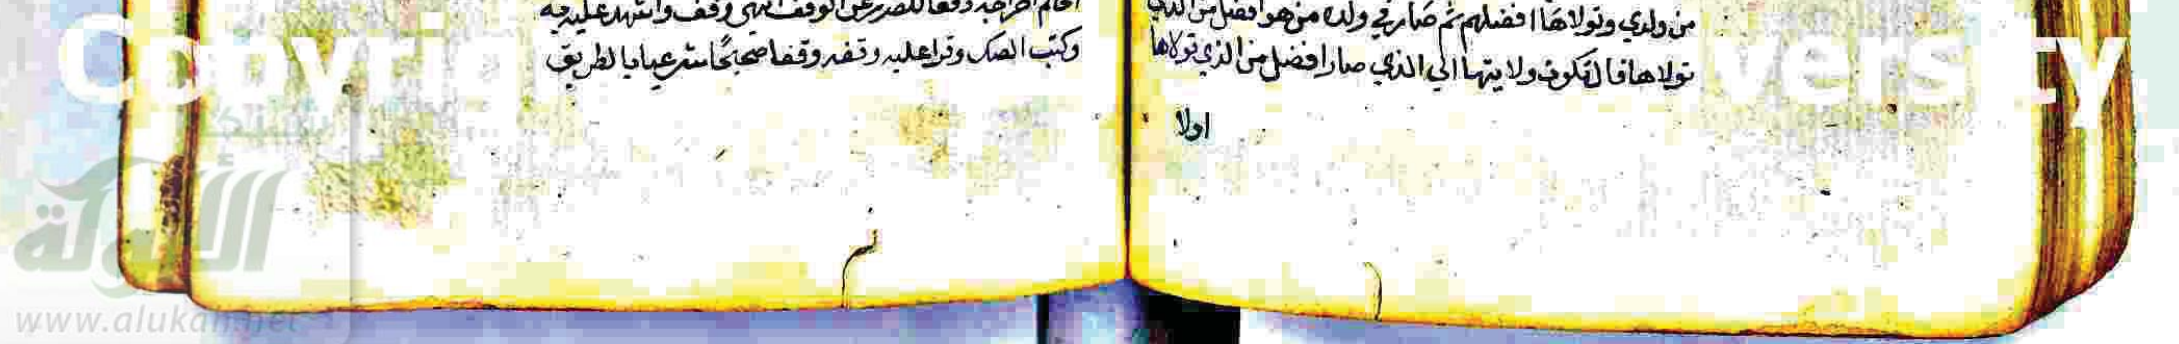 من ولدي وتولاها افضلهم ثم صار في ولده من هو افضل من الذي
تولاها قال تكون ولايتها الي الذي صار افضل من الذي تولاها
اولا
للضرر عن الوقف انتهى وقف واشهد عليه فيه
وكتب الصك وقرا عليه وقفه وقفا صحيحا شرعيا بالطريق
Copyrig
versity
شبكة
الألوكة
www.alukah.net